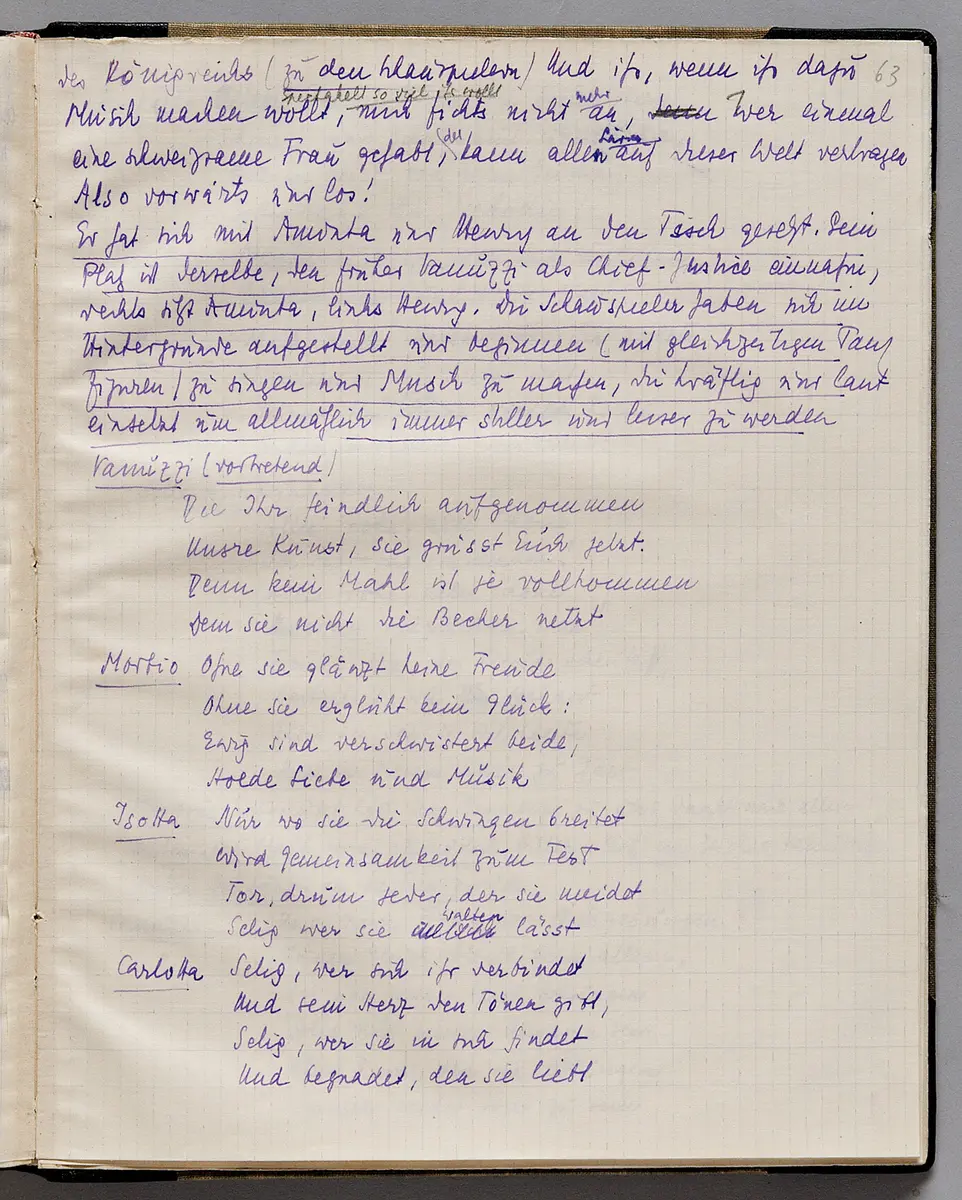 des Königreichs (zu den Schauspielern) Und ihr, wenn ihr dazu 63
spectakelt so viel ihr wollt
Musik machen wollt, mich fichts nicht mehr an, denn Wer einmal
eine schweigsame Frau gehabt, der kann allen Lärm auf dieser Welt vertragen
Also vorwärts nur los!
Er hat sich mit Aminta und Henry an den Tisch gesetzt. Sein
Platz ist derselbe, den früher Vanuzzi als Chief-Justice einnahm,
rechts sitzt Aminta, links Henry. Die Schauspieler haben sich im
Hintergrunde aufgestellt und beginnen (mit gleichzeitigen Tanz
figuren) zu singen und Musik zu machen, die kräftig und laut
einsetzt um allmählich immer stiller und leiser zu werden
Vanuzzi (vortretend)
Die Ihr feindlich aufgenommen
Unsre Kunst, sie grüsst Euch jetzt.
Denn kein Mahl ist je vollkommen
Dem sie nicht die Becher netzt
Morbio Ohne sie glänzt keine Freude
Ohne sie erglüht kein Glück:
Ewig sind verschwistert beide,
Holde Liebe und Musik
Isotta Nur wo sie die Schwingen breitet
Wird Gemeinsamkeit zum Fest
Tor, drum jeder, der sie meidet
Selig wer sie walten lässt
Carlotta Selig, wer sich ihr verbindet
Und sein Herz den Tönen gibt,
Selig, wer sie in sich findet
Und begnadet, den sie liebt